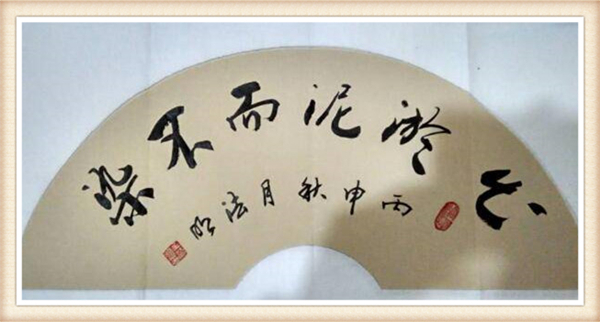 出淤泥而不染
丙申秋月法明